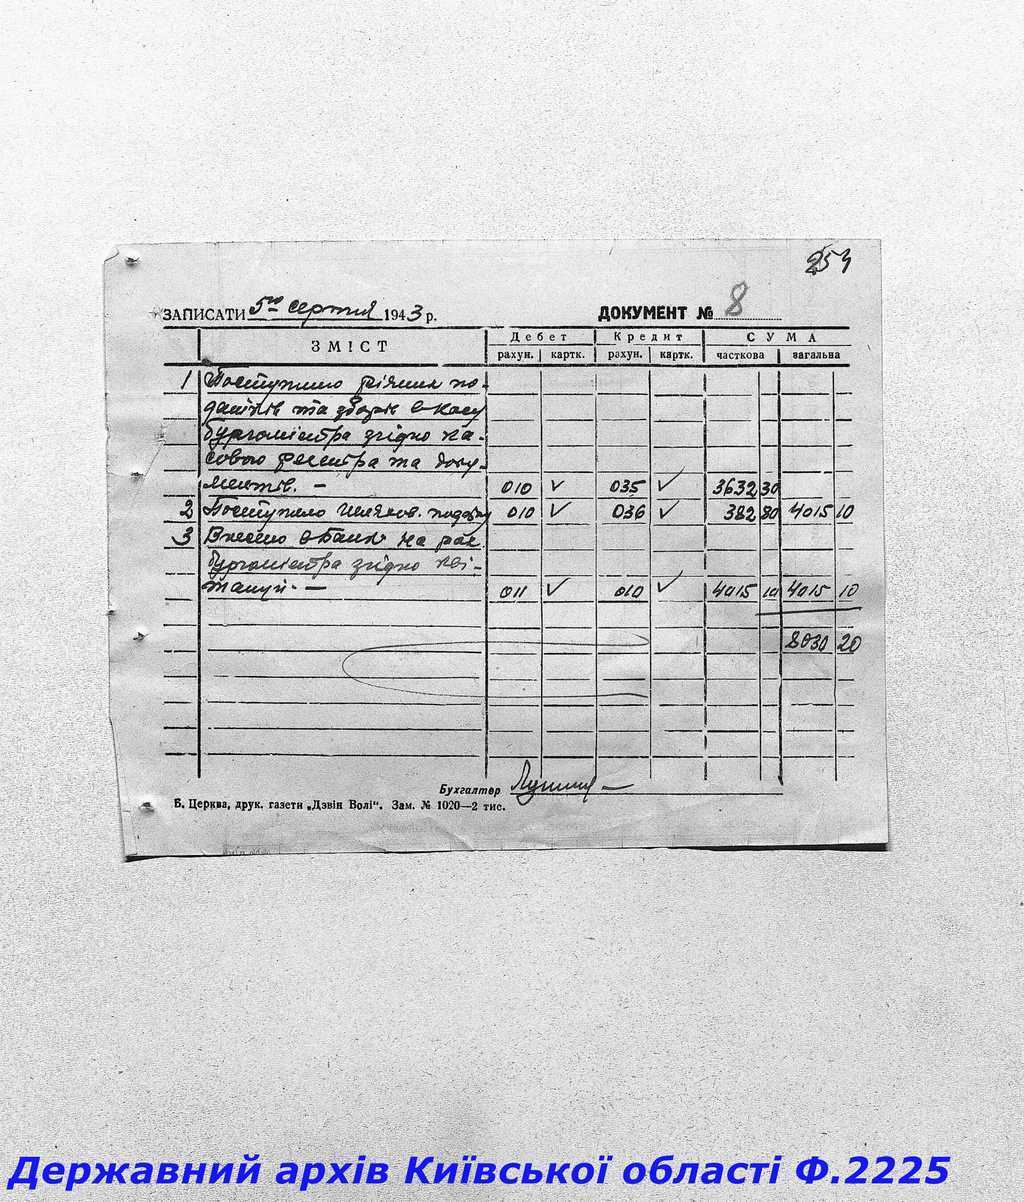 254
ЗАПИСАТИ 5го серпня 1943 р. ДОКУМЕНТ № 8
ЗМІСТ Дебет Кредит СУМА
рахун. картк. рахун. картк. часткова загальна
1 Поступило різних по-
датків та зборів в касу
бургомістра згідно ка-
сового реєстра та доку-
ментів. — 010 ✓ 035 ✓ 3632 30
2 Поступило шляхов. податку 010 ✓ 036 ✓ 382 80 4015 10
3 Внесено в Банк на рах.
бургомістра згідно кві-
танції — 011 ✓ 010 ✓ 4015 10 4015 10
8030 20
Бухгалтер
Б. Церква, друк. газети „Дзвін Волі“. Зам. № 1020—2 тис.
Державний архів Київської області Ф.2225